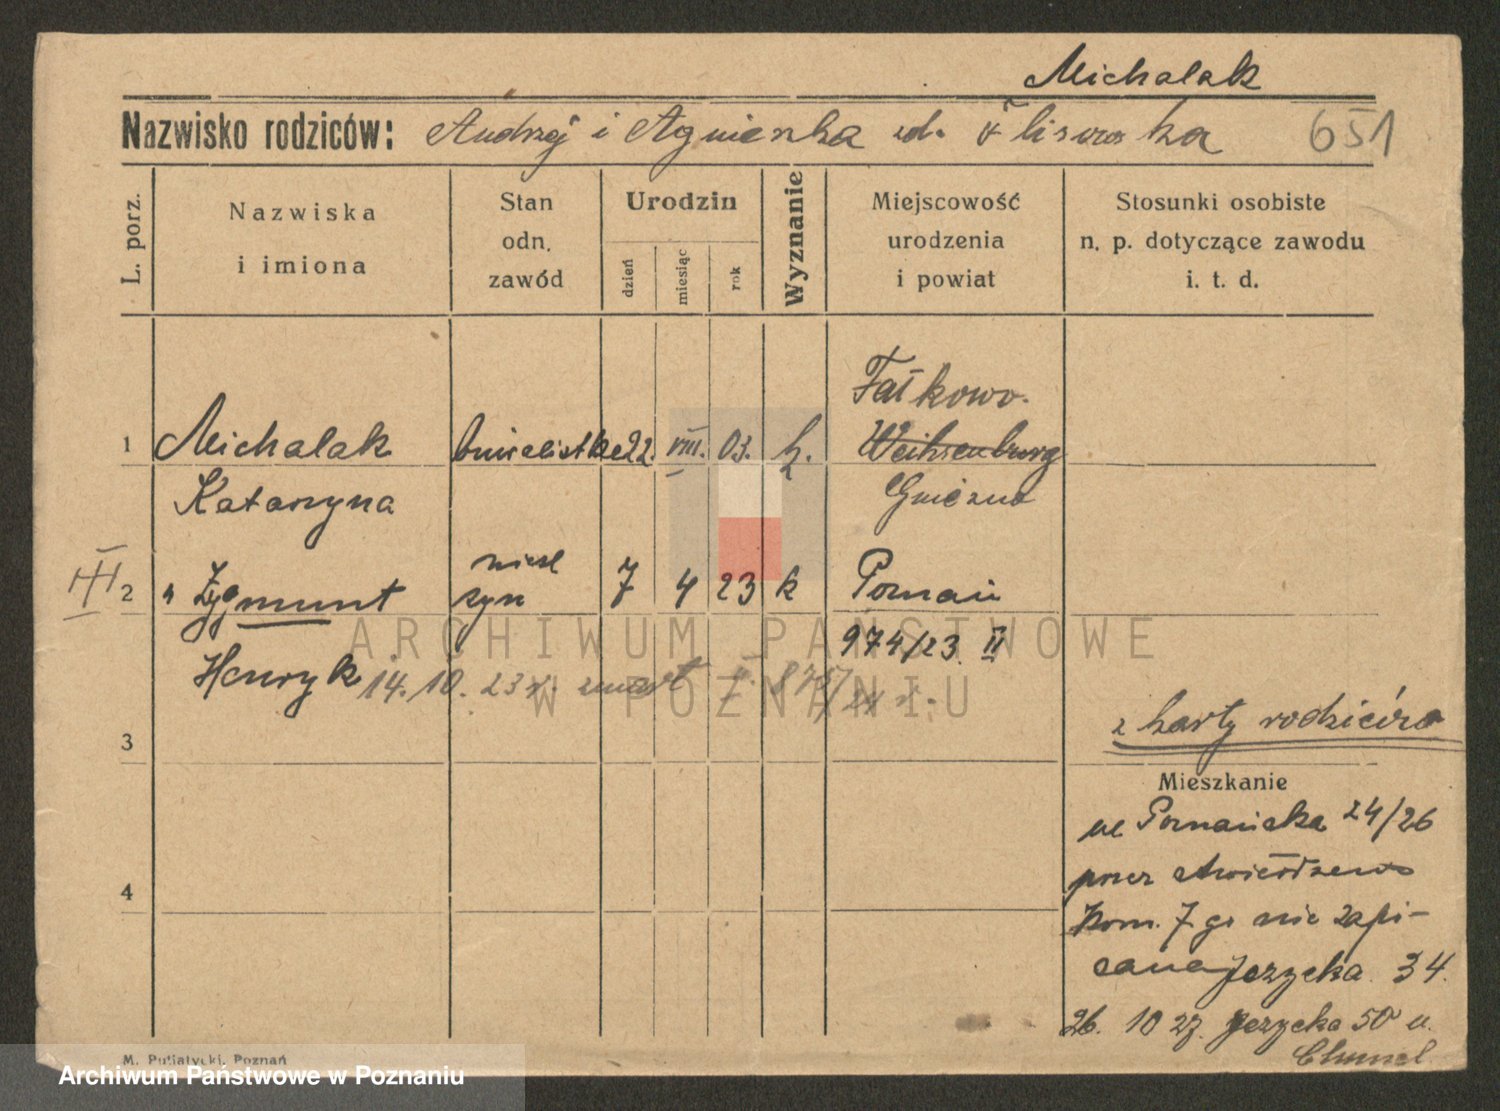 Michalak
Nazwisko rodziców: Andrzej i Agnieszka zd. Flisowska 651
L. porz.
Nazwiska i imiona
Stan odn. zawód
Urodzin
dzień miesiąc rok
Wyznanie
Miejscowość urodzenia i powiat
Stosunki osobiste n. p. dotyczące zawodu i. t. d.
Fałkowo.
1 Michalak 22. VIII. 03. k. Weihsenburg
Katarzyna Gniezno
III 2 " Zygmunt nieśl syn 7 4 23 k Poznań
Henryk 974/23. II
14. 10. 23 r. zmarł
z karty rodziców
3
Mieszkanie
ul Poznańska 24/26
przez stwierdzenie
4
Kom. 7 go nie zapi-
sana Jeżycka 34.
26. 10 27. Jeżycka 50 u.
Chmiel
M. Putiatycki, Poznań
ARCHIWUM PAŃSTWOWE
W POZNANIU
Archiwum Państwowe w Poznaniu